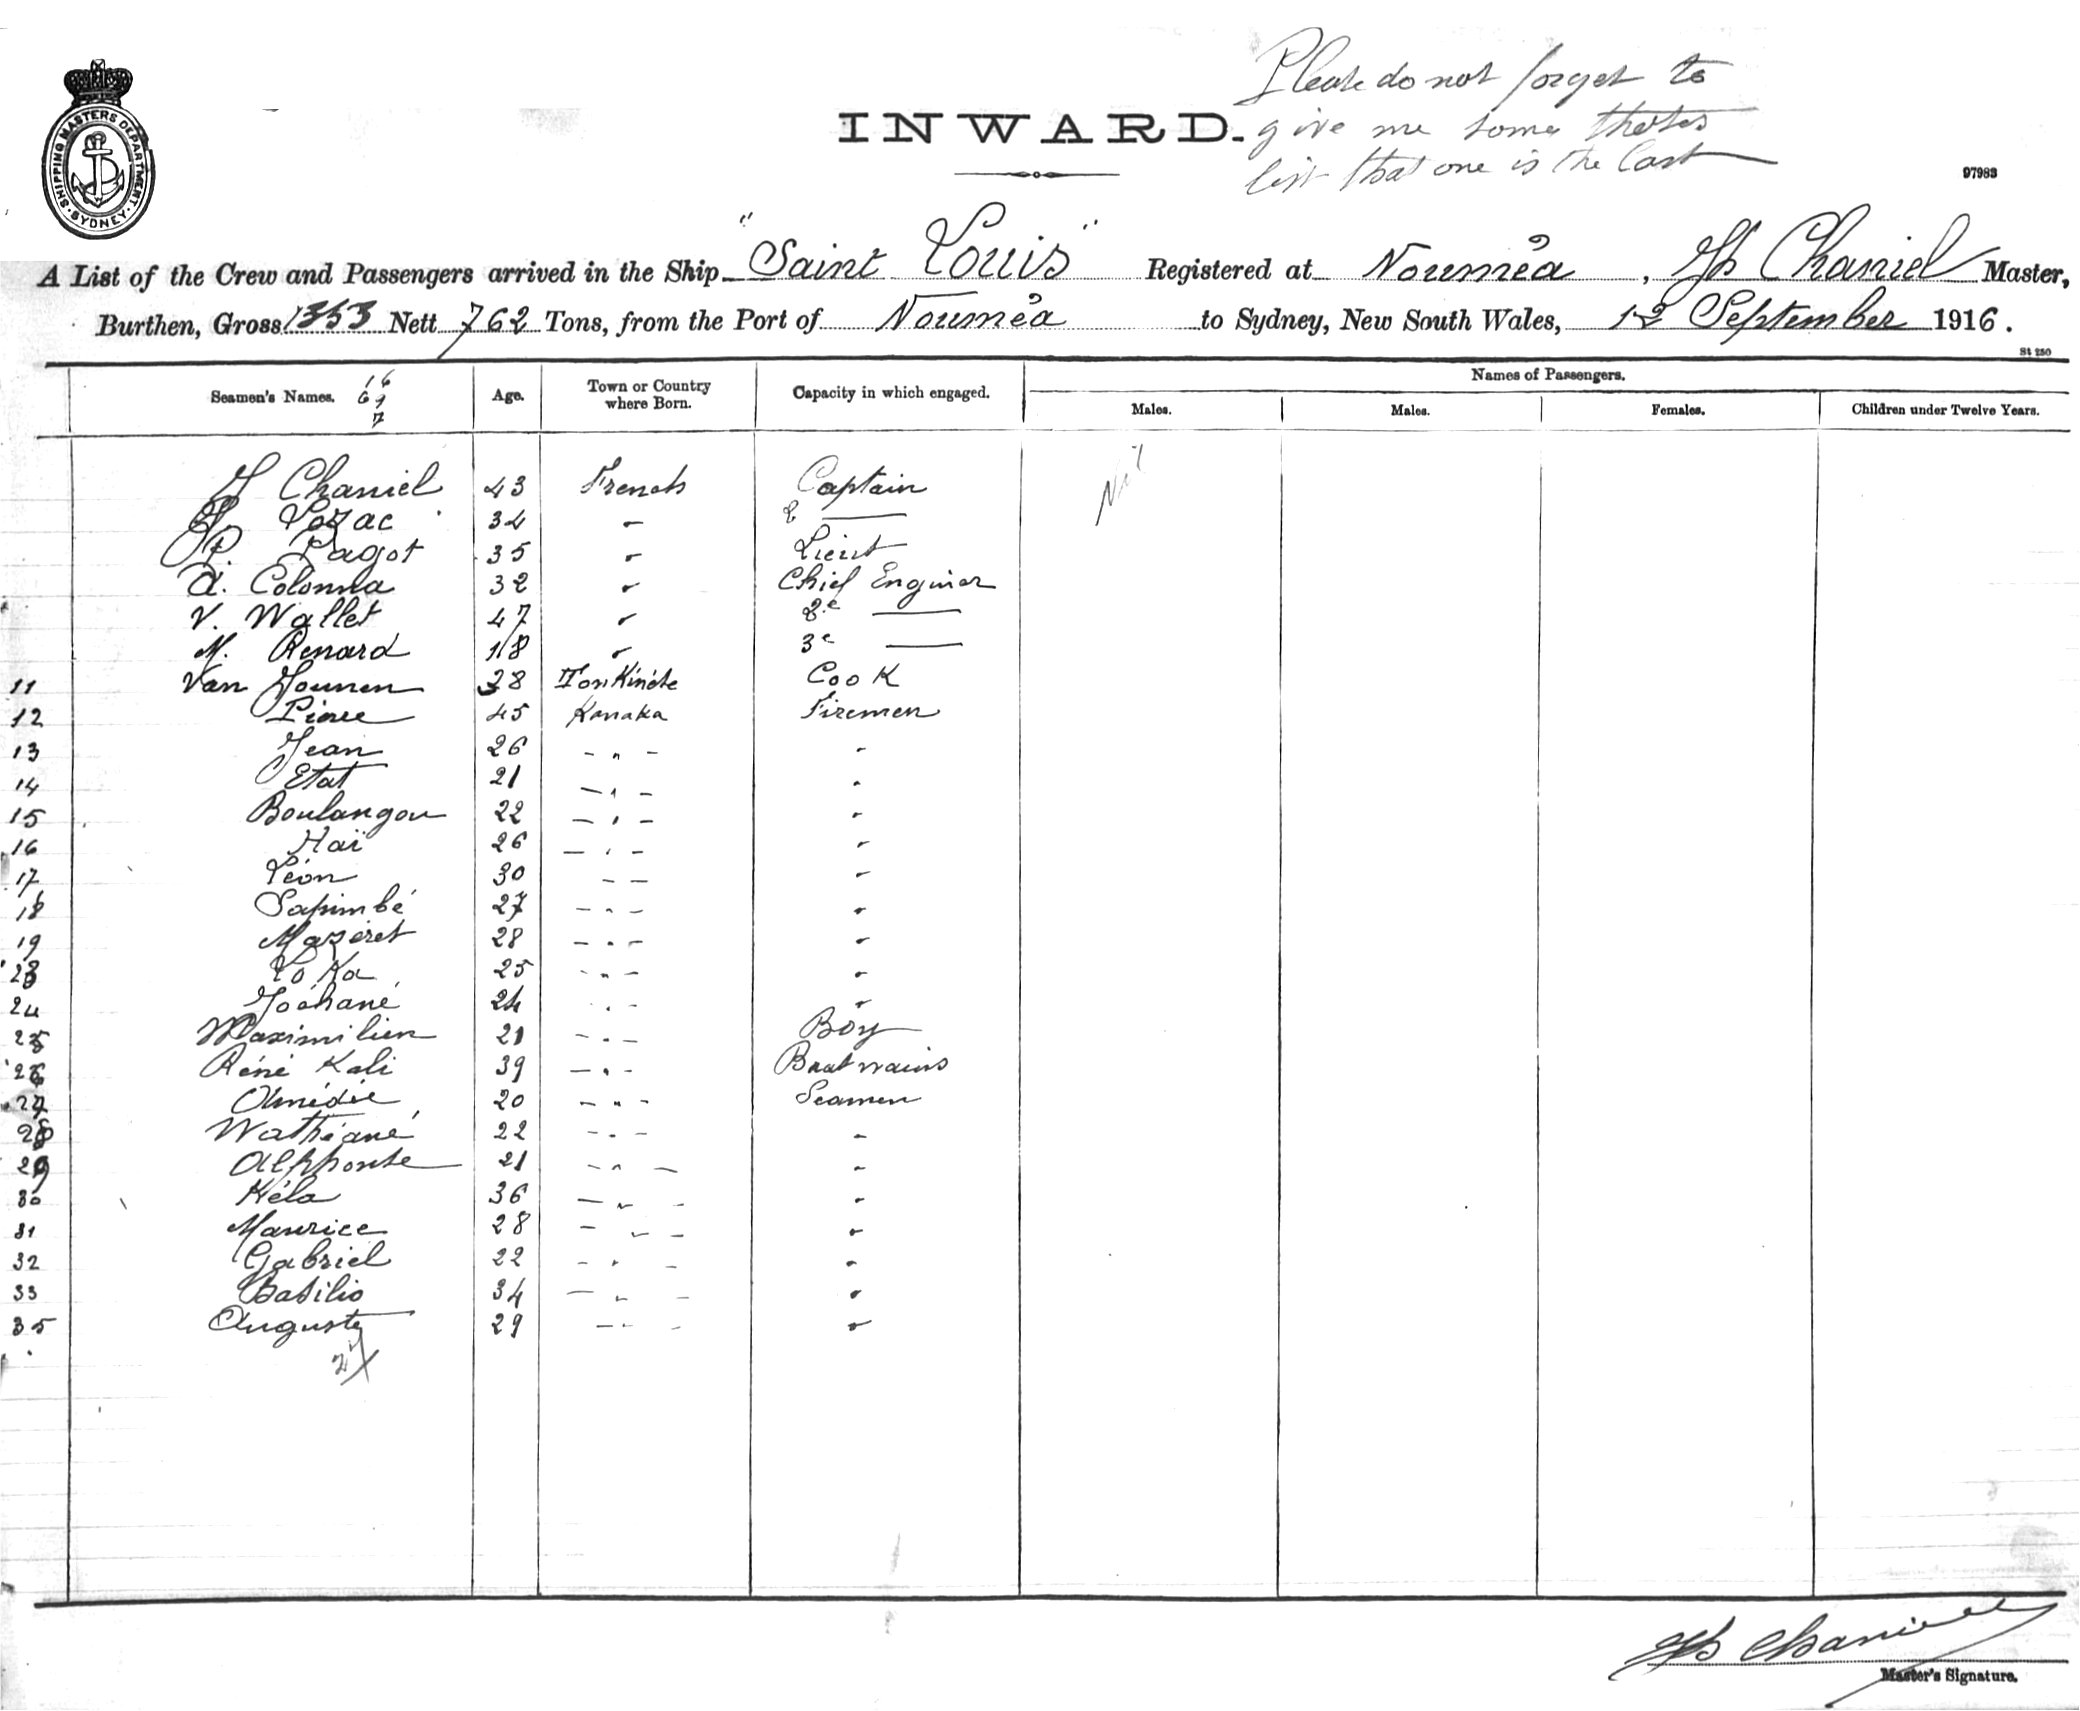 Please do not forget to
give me some
list that one is the last
SHIPPING MASTERS DEPARTMENT. SYDNEY
INWARD.
97983
A List of the Crew and Passengers arrived in the Ship "Saint Louis" Registered at Nouméa, Jh Chaniel Master,
Burthen, Gross 1353 Nett 762 Tons, from the Port of Nouméa to Sydney, New South Wales, 12 September 1916.
St 250
Seamen's Names. Age. Town or Country where Born. Capacity in which engaged. Names of Passengers.
Males. Males. Females. Children under Twelve Years.
J Chaniel 43 French Captain Nil
Lozac 34 " 2 ——
P. Pagot 35 " Lieut
A. Colonna 32 " Chief Enginer
V. Wallet 47 " 2e ——
M. Renard 18 " 3e ——
11 Van Younen 28 Tonkinese Cook
12 Pierre 45 Kanaka Firemen
13 Jean 26 - " - "
14 Etat 21 - " - "
15 Boulangou 22 - " - "
16 Haï 26 - " - "
17 Léon 30 - - "
18 Sapimbé 27 - " - "
19 Mazeret 28 - " - "
23 Yo Ka 25 - " - "
24 Joéhané 24 " - "
25 Maximilien 21 - " - Boy
26 Réné Kali 39 - " - Boatwains
27 Amédée 20 - " - Seamen
28 Wathéané 22 - " - "
29 Alphonse 21 - " - "
30 Kéla 36 - " - "
31 Maurice 28 - " - "
32 Gabriel 22 - " - "
33 Basilio 34 - " - "
35 Auguste 29 - " - "
27
Jh Chaniel
Master's Signature.